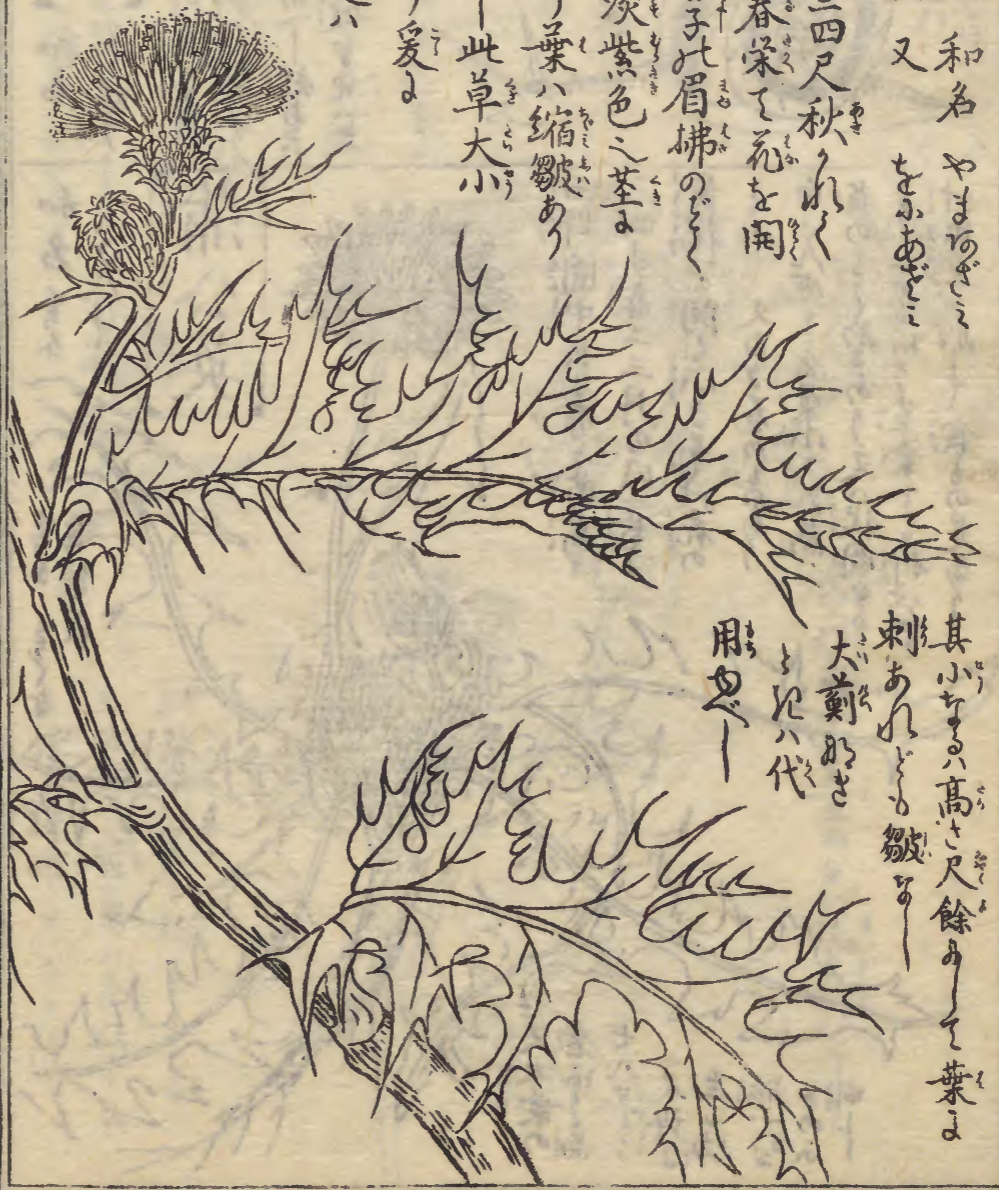 和名 やまあざミ
又 をにあざミ
三四尺秋かれて
春栄て花を開
子の眉拂のごとく
淡紫色也茎に
葉ハ縮皺あり
し此草大小
爰に
ハ
其小なるハ高さ尺餘にして葉に
刺あれども皺なし
大薊なき
ときハ代
用ゆべし